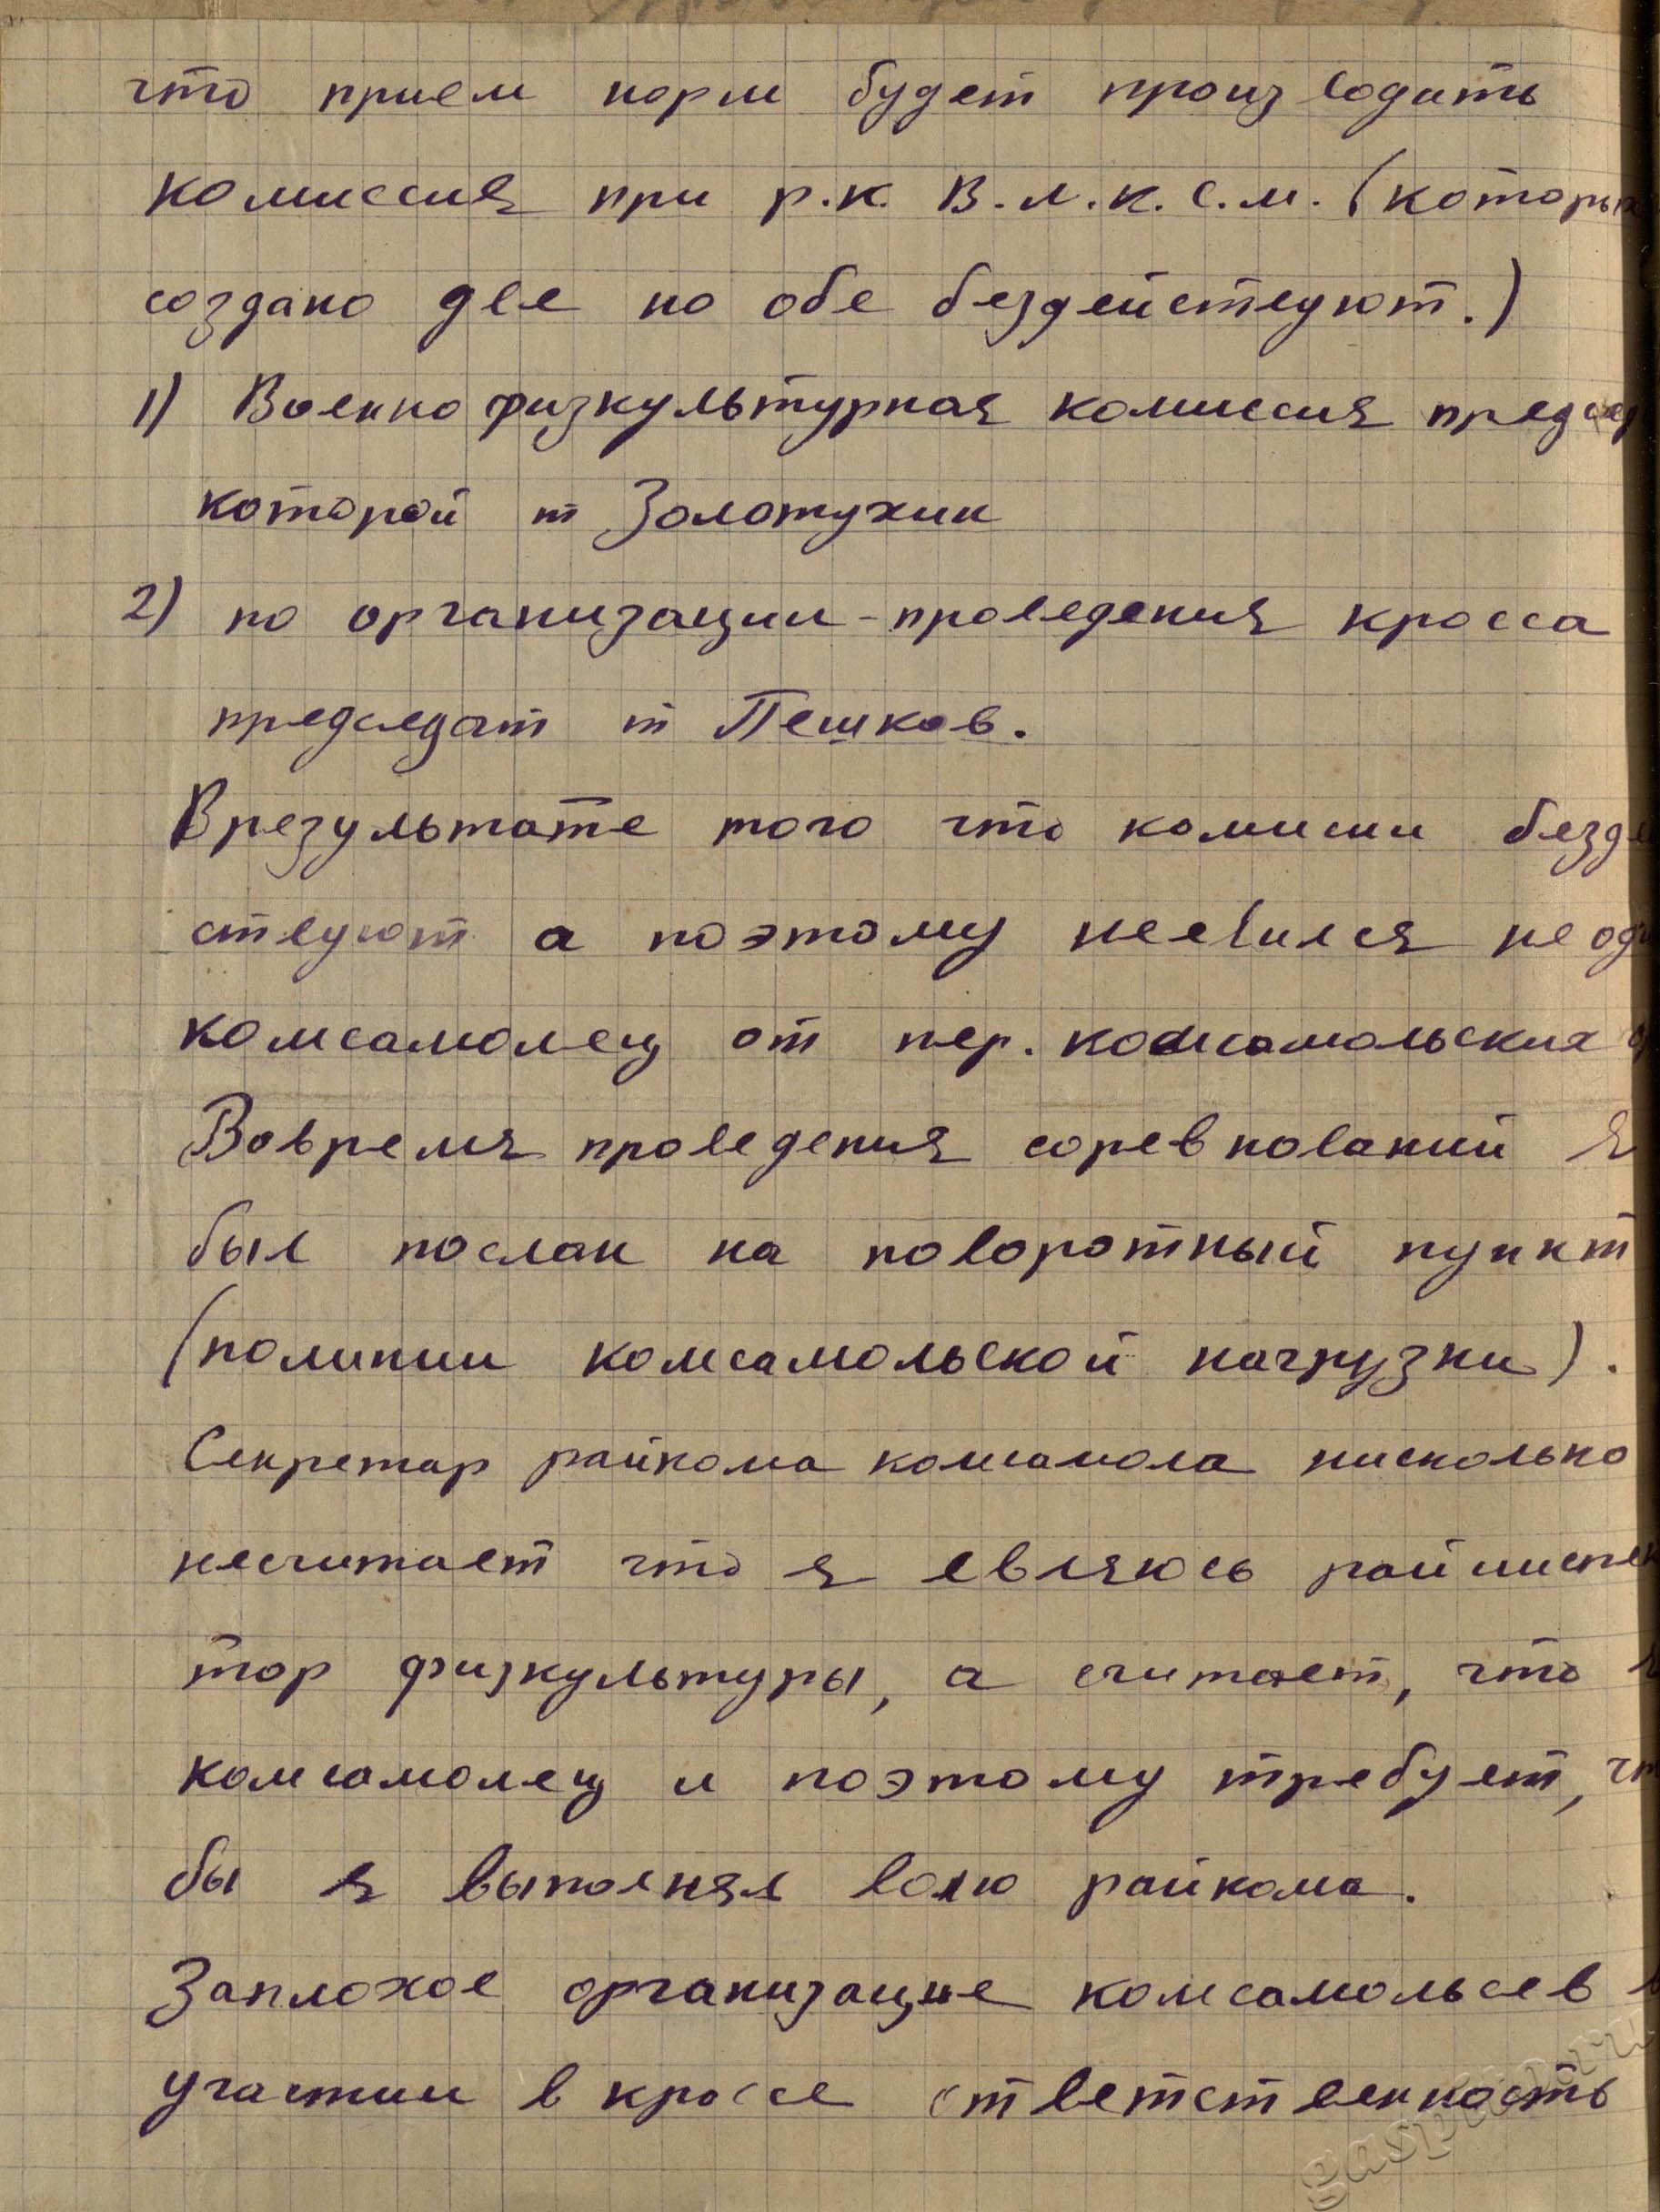 что прием норм будет производить
комиссия при р.к. В.л.к.с.м. (которых
создано две но обе бездействуют.)
1) Военно физкультурная комиссия председ
которой т Золотухин
2) по организации-проведения кросса
председат т Пешков.
В результате того что комисии безде
ствуют а поэтому неевился не оди
комсамолец от пер. комсамольских
Вовремя проведения соревнований я
был послан на поворотный пункт
(полинии комсамольской нагрузки).
Секретар райкома комсамола нисколько
несчитает что я евляюсь райинспек
тор физкультуры, а считает, что я
комсамолец и поэтому требует, чт
бы я выполнял волю райкома.
Заплохое организацие комсамольсев в
участии в кроссе ответственность
gaspito.ru